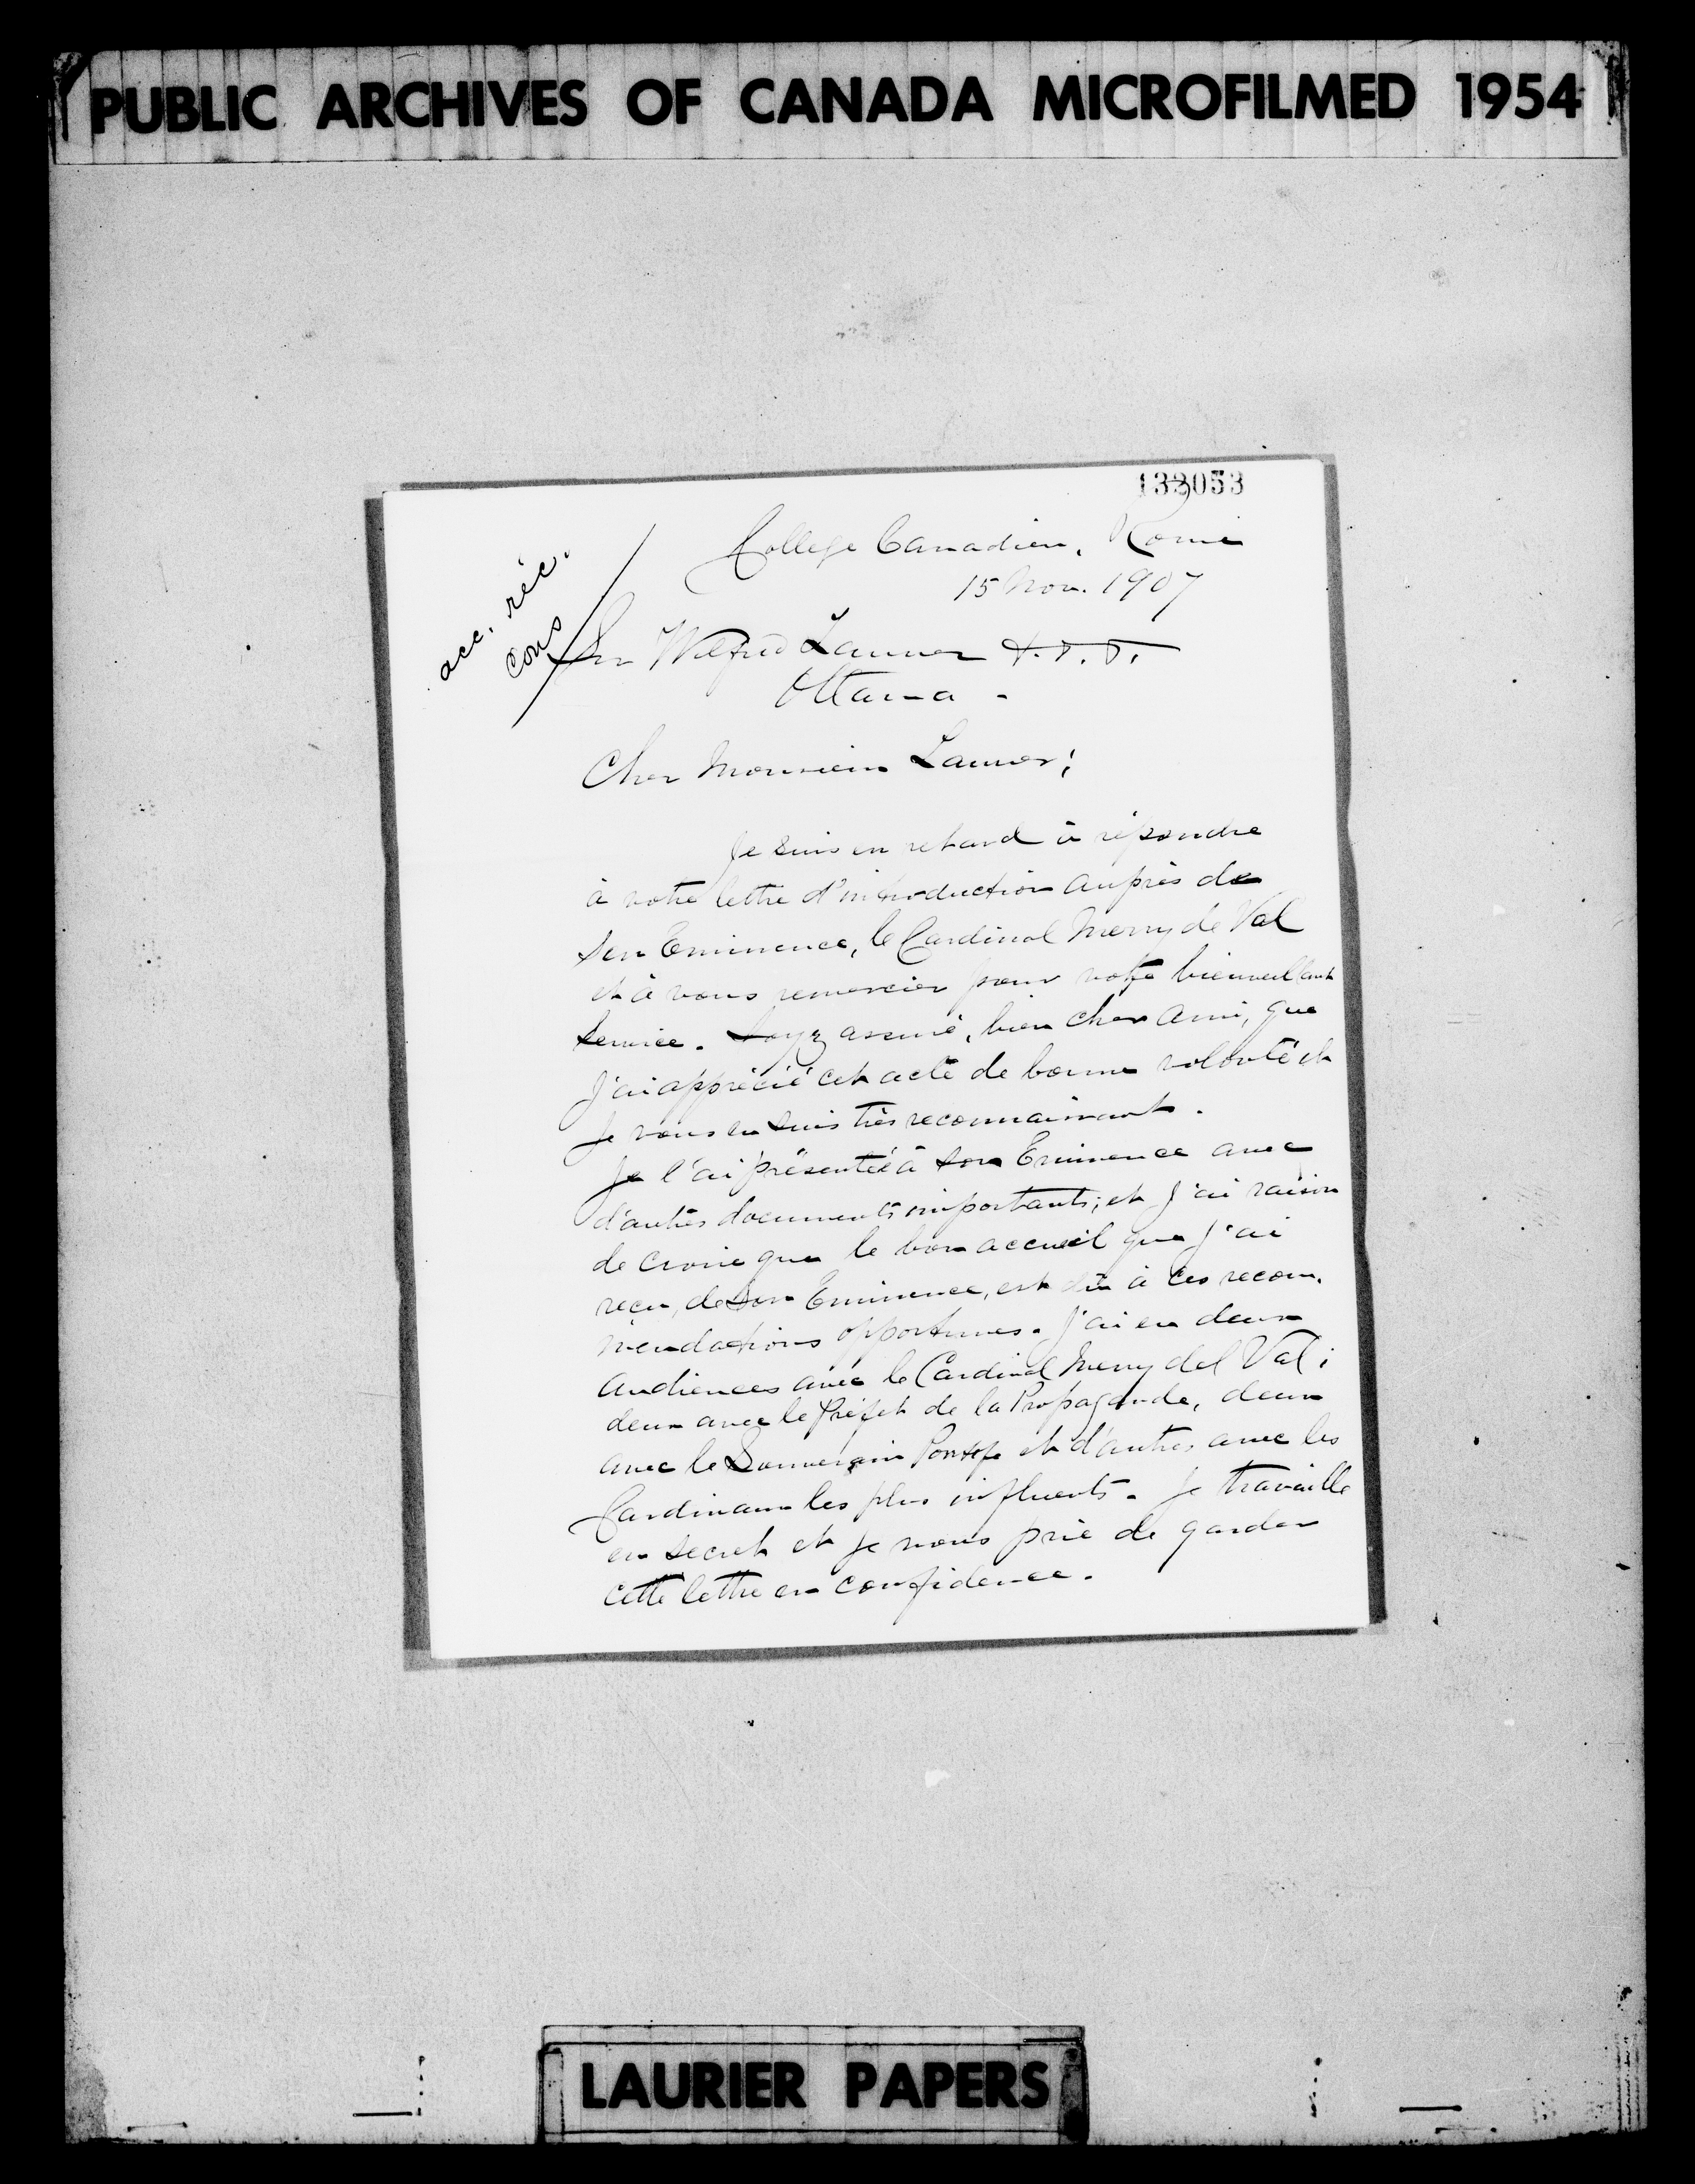 PUBLIC ARCHIVES OF CANADA MICROFILMED 1954
133053
College Canadien, Rome
15 Nov. 1907
acc. réc.
cons
Sir Wilfrid Laurier
Ottawa -
Cher Monsieur Laurier;
Je suis en retard à répondre
à votre lettre d'introduction auprès de
Son Eminence, le Cardinal Merry de Val
et à vous remercier pour votre bienveillant
service. Soyez assuré, bien cher ami, que
j'ai apprécié cet acte de bonne volonté et
je vous en suis très reconnaissant.
Je l'ai présentée à Son Eminence avec
d'autres documents importants; et j'ai raison
de croire que le bon accueil que j'ai
reçu, de Son Eminence, est dû à ces recom-
mendations opportunes. J'ai eu deux
audiences avec le Cardinal Merry del Val;
deux avec le Préfet de la Propagande, deux
avec le Souverain Pontife et d'autres avec les
Cardinaux les plus influents. Je travaille
en secret et je vous prie de garder
cette lettre en confidence.
LAURIER PAPERS